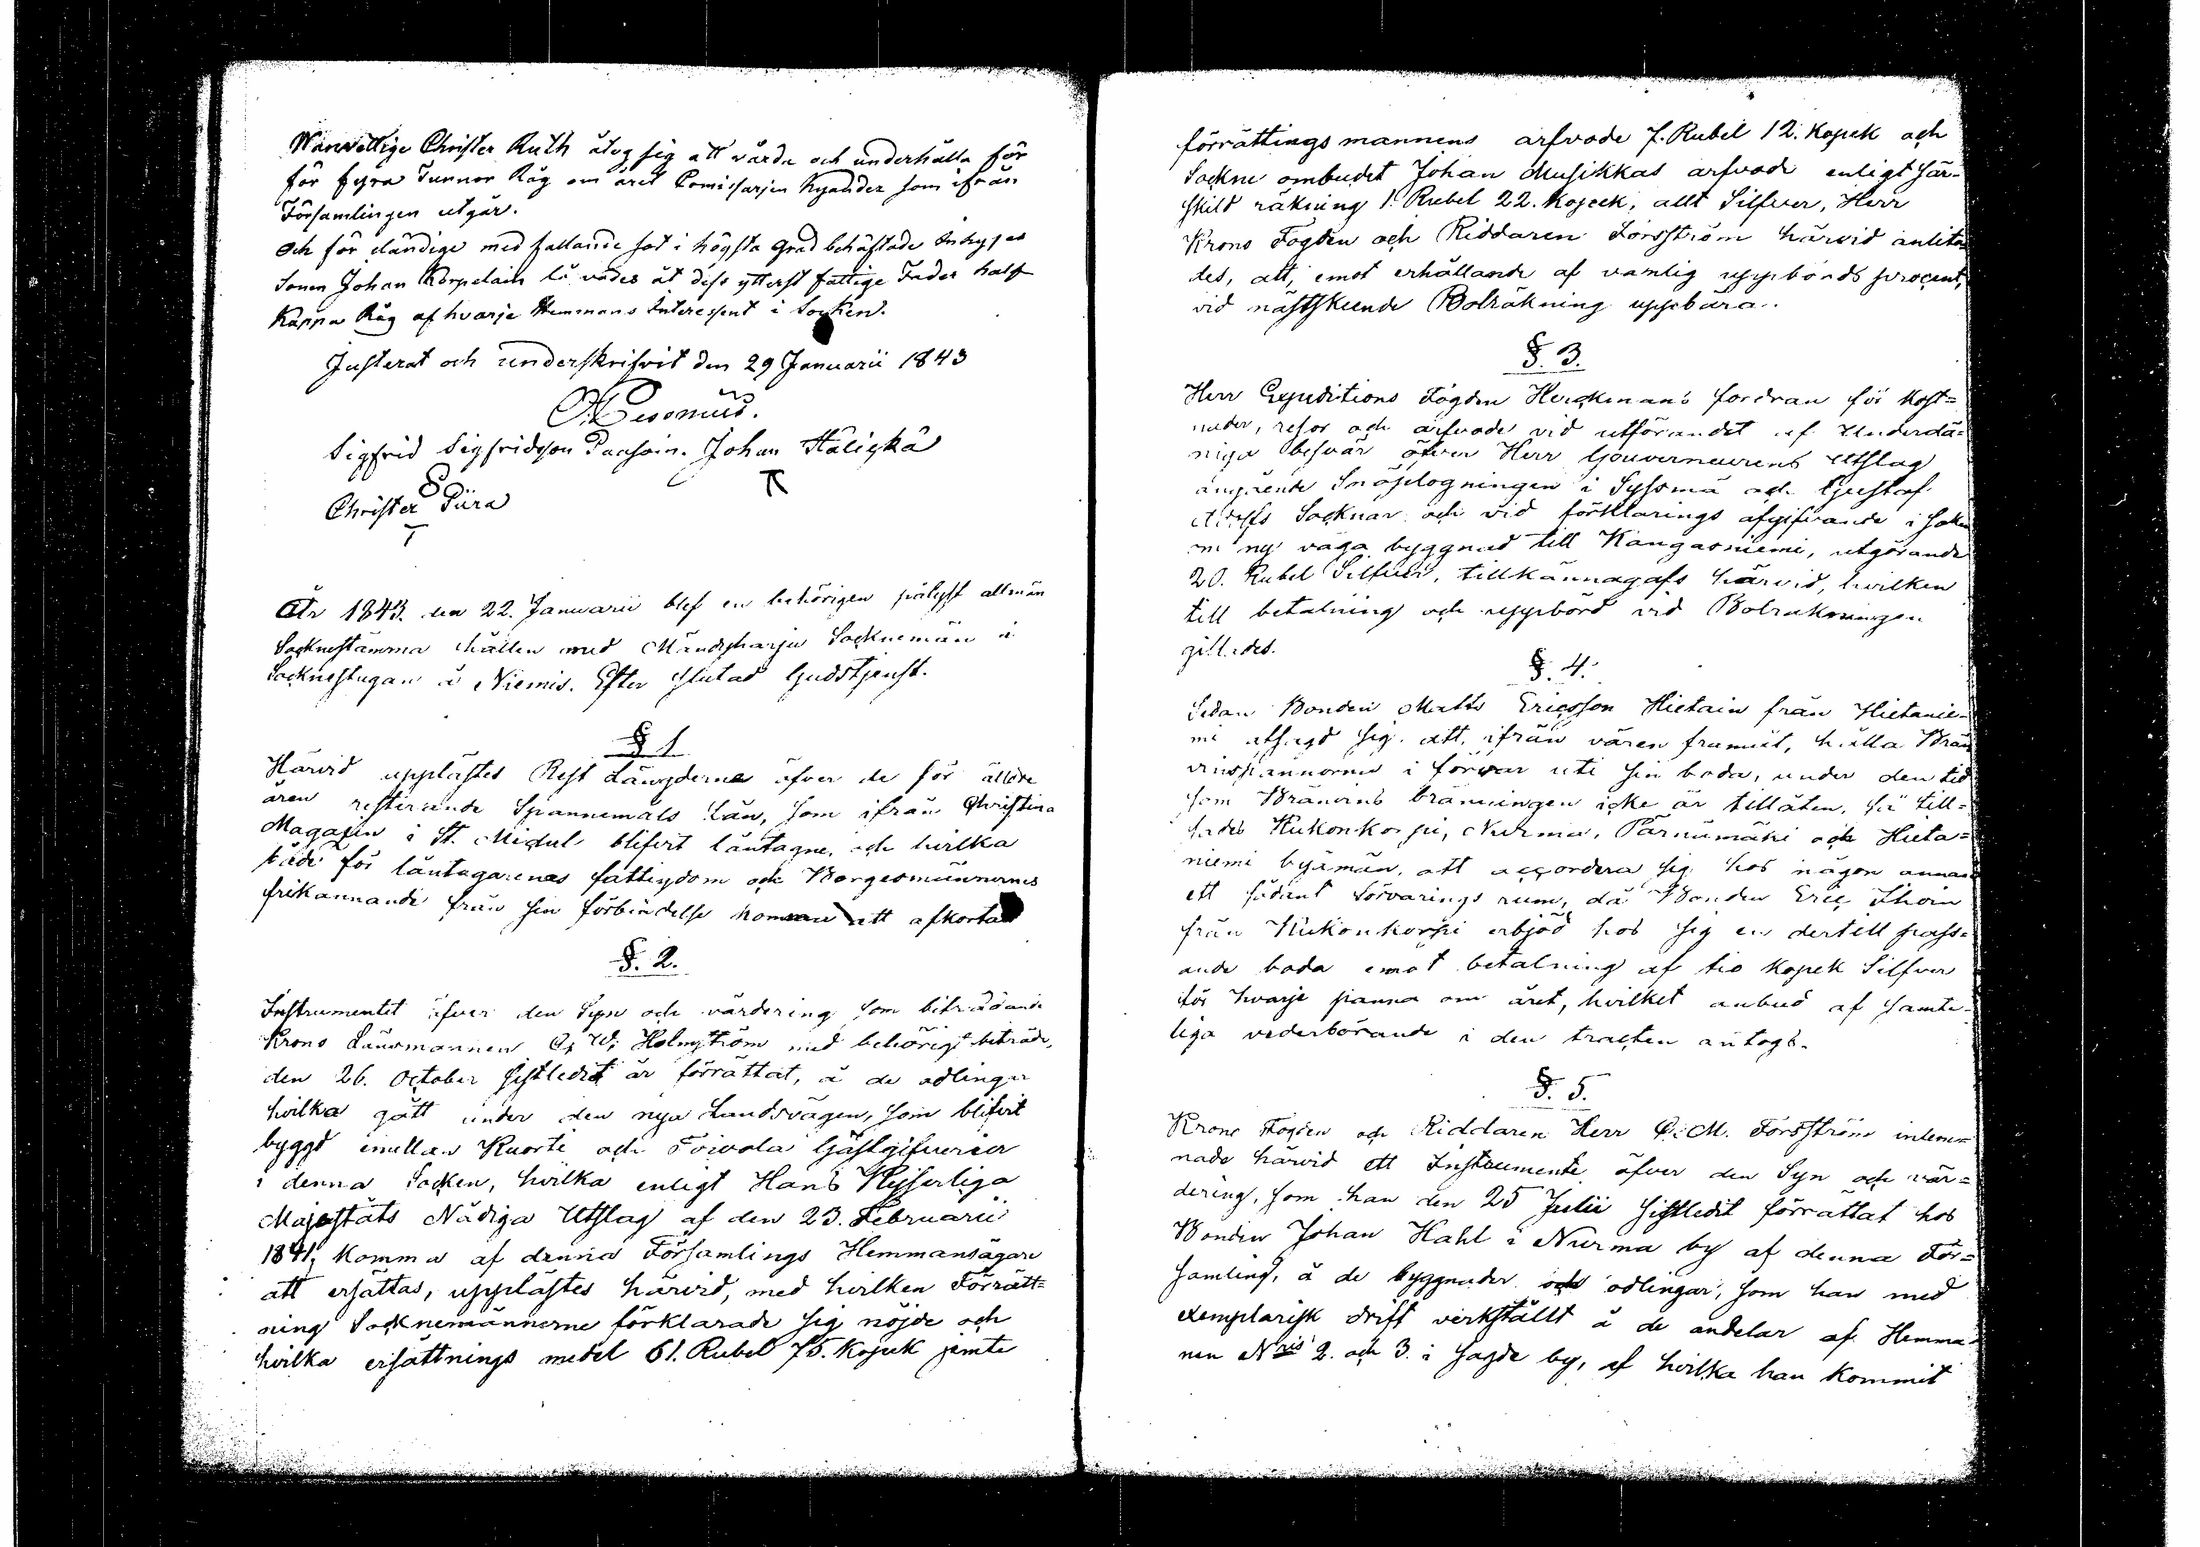 Wanvettige Christer Ruth åtog sig att vårda och underhålla för
för fyra Tunnor Råg om året Comissarjen Kyander som ifrån
Församlingen utgår.
och för eländige med fallande sot i högsta grad behäftade Inhyses
Sonen Johan Korpelain lå vades åt dess ytterst fattige Fader half
Kappa Råg af hvarje Hemmans Interessent i Socken.
Justerat och underskrifvit den 29 Januarii 1843
Sigfrid Sigfridsson Paasoin. Johan Häligkä
Christer Püra
År 1843. den 22. Januarii blef en behörigen pålyst allmän
Socknestämma hållen med Mändyharju Socknemän i
Socknestugan å Niemis. Efter slutad Gudstjenst.
§ 1
Härvid upplästes Rest Längderne öfver de för äldre
åren resterande Spannemåls Lån, som ifrån Christina
Magazin i St. Michel blifvit låntagne, och hvilka
både för låntagarenas fattigdom och Borgesmännernes
frikannande från sin förbindelse komma att afkortas
§. 2.
Instrumentet öfver den Syn och värdering som biträdande
Krono Länsmannen C. W. Holmström med behörigt biträde,
den 26. October sistledit är förrättat, å de odlingar
hvilka gått under den nya Landsvägen, som blifvit
byggd emellan Kuorti och Toivola Gästgifverier
i denna Socken, hvilka enligt Hans Kejserliga
Majestäts Nådiga Utslag af den 23. Februarii
1841, komma af denna Församlings Hemmansägare
att ersättas, upplästes härvid, med hvilken Förrätt=
ning Socknemännerne förklarade sig nöjde och
hvilka ersättnings medel 61. Rubel 75. Kopek jemte
förrättings mannens arfvode 7. Rubel 12. Kopek och
Sockne ombudet Johan Musikkas arfvode enligt sär=
skild räkning 1. Rubel 22. Kopeek, allt Silfver, Herr
Krono Fogden och Riddaren Forsström härvid anlita
des, att, emot erhållande af vanlig uppbörds procent,
vid nästskeende Bolräkning uppbära.
§. 3.
Herr Expeditions Fogden Herckmans fordran för kost=
nader, resor och arfvode vid utförandet af Underdå=
niga besvär öfver Herr Gouverneurens Utslag
angående Snöplogningen i Syssmä och Gustaf
Adolfs Socknar och vid förklarings afgifvande i saken
om ny väga byggnad till Kangasniemi, utgörande
20. Rubel Silfver, tillkännagafs härvid, hvilken
till betalning och uppbörd vid Bolräkningen
gillades.
§. 4.
Sedan Bonden Matts Ericsson Hietain från Hietanie=
mi afsagd sig att, ifrån våren framåt, hålla Brän
vinspannorna i förvar uti sin boda, under den tid
som Bränvins bränningen icke är tillåten, så till=
sades Kukonkorpi, Nurmaa, Pärnämäki och Hieta=
niemi byämän, att accordera sig hos någon annan
ett sådant förvarings rum, då Bonden Eric Ihoin
från Kukonkorpi erbjöd hos sig en dertill pass=
ande boda emot betalning af tio kopek Silfver
för hvarje panna om året, hvilket anbud af samte=
liga vederbörande i den tracten antogs.
§. 5.
Krono Fogden och Riddaren Herr C. M. Forsström inlem=
nade härvid ett Instrumente öfver den Syn och vär=
dering, som han den 25 Julii sistledit förrättat hos
Bonden Johan Hahl i Nurma by af denna För=
samling, å de byggnader och odlingar, som han med
exemplarisk drift verkställt å de andelar af Hemma=
nen Nris 2. och 3. i sagde by, af hvilka han kommit